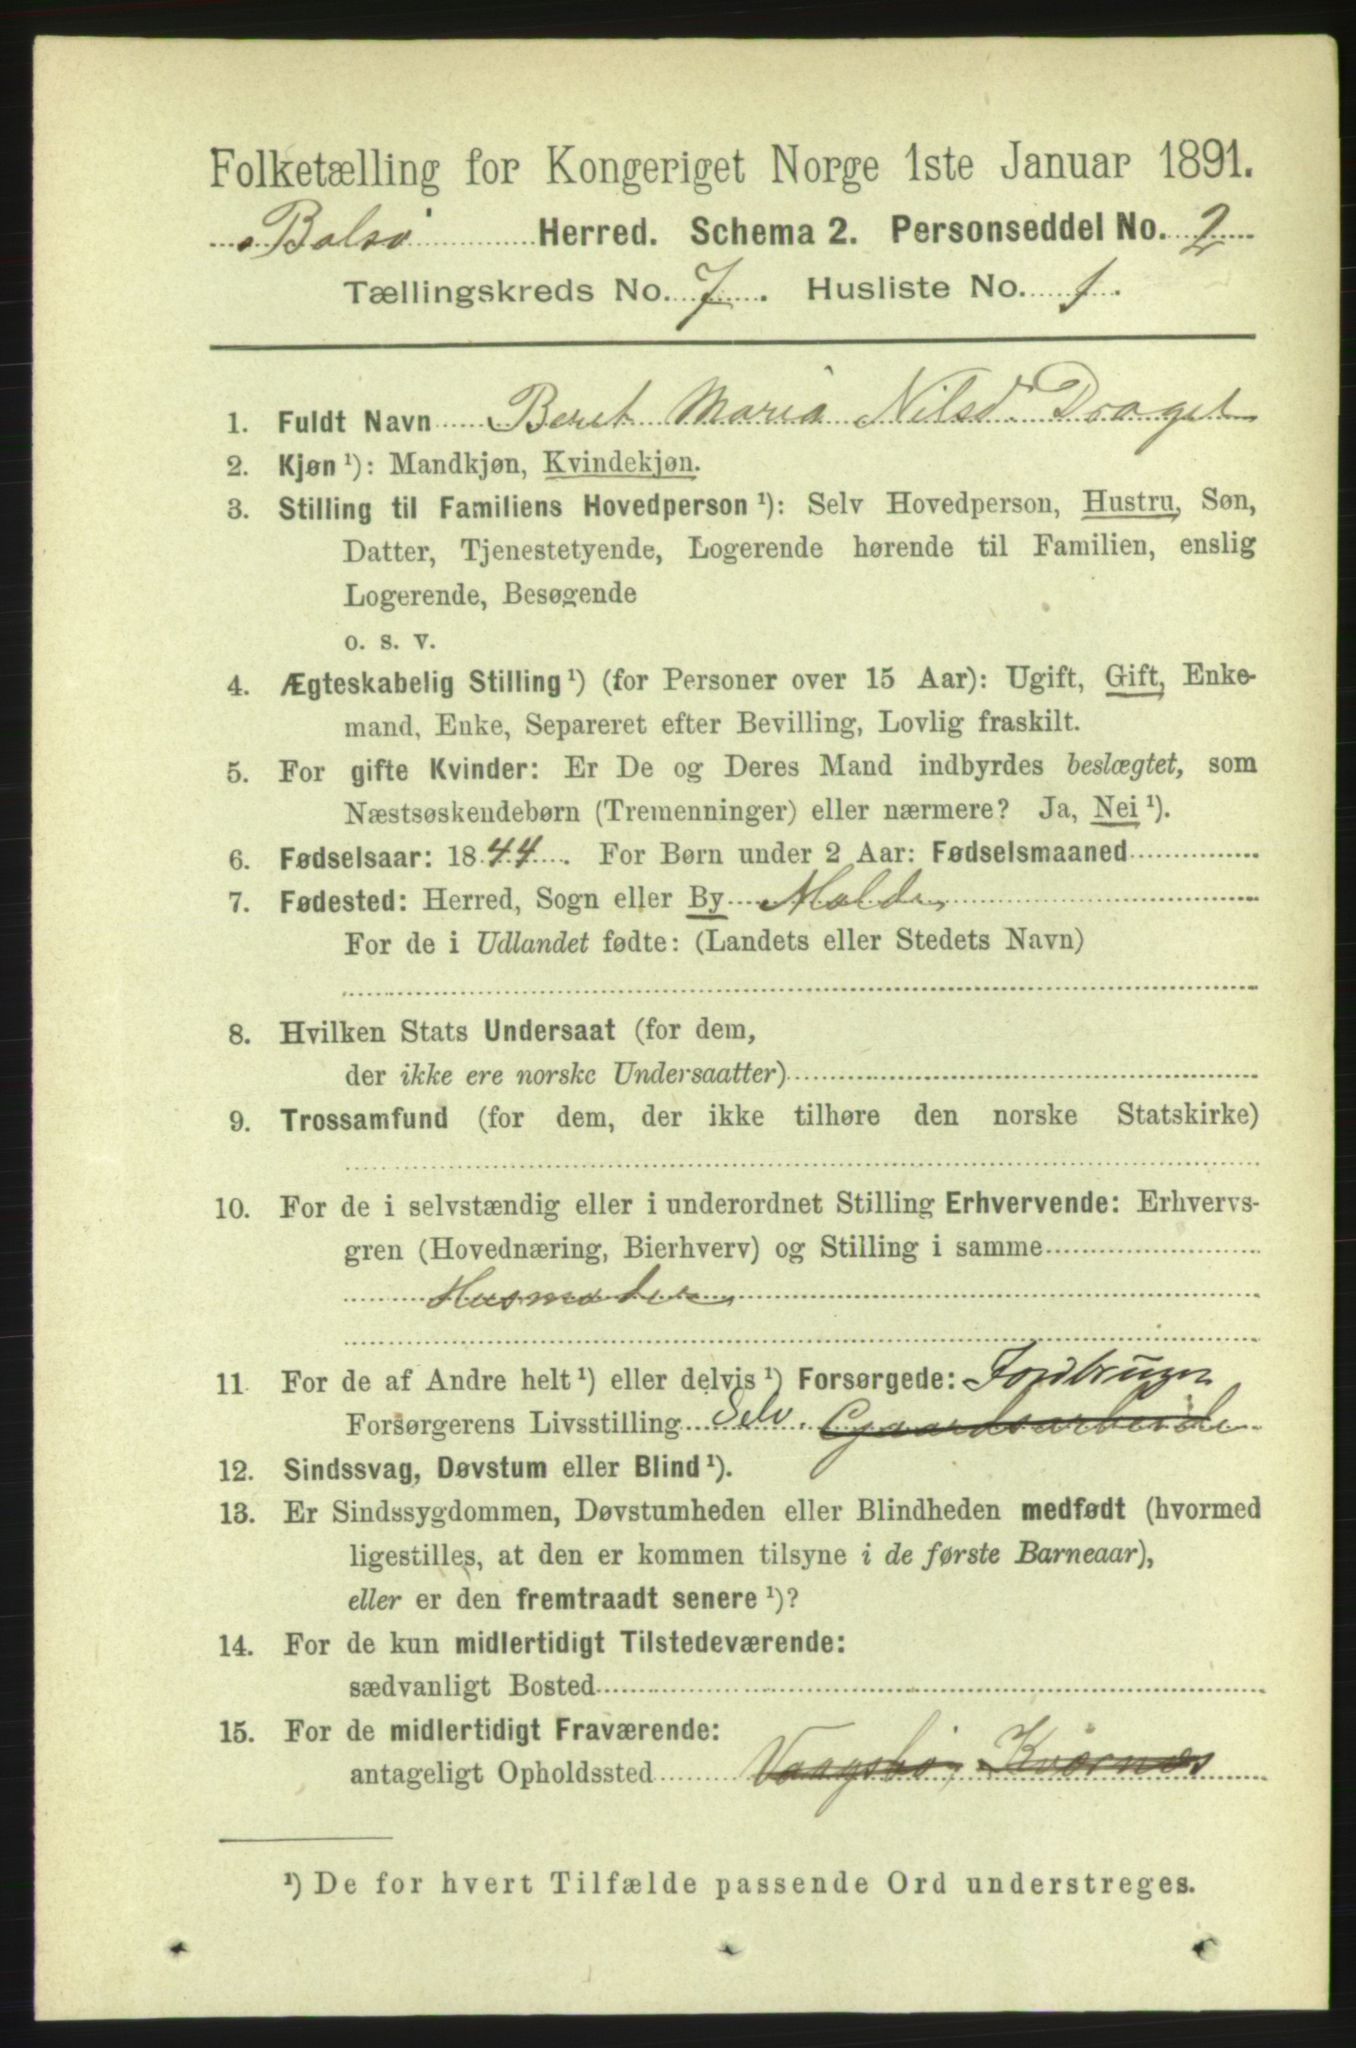 Folketælling for Kongeriget Norge 1ste Januar 1891.
Bolsø Herred. Schema 2. Personseddel No. 2
Tællingskreds No. 7. Husliste No. 1.
1. Fuldt Navn Beret Maria Nilsd. Draget
2. Kjøn ¹): Mandkjøn, Kvindekjøn.
3. Stilling til Familiens Hovedperson ¹): Selv Hovedperson, Hustru, Søn,
Datter, Tjenestetyende, Logerende hørende til Familien, enslig
Logerende, Besøgende
o. s. v.
4. Ægteskabelig Stilling ¹) (for Personer over 15 Aar): Ugift, Gift, Enke-
mand, Enke, Separeret efter Bevilling, Lovlig fraskilt.
5. For gifte Kvinder: Er De og Deres Mand indbyrdes beslægtet, som
Næstsøskendebørn (Tremenninger) eller nærmere? Ja, Nei ¹).
6. Fødselsaar: 1844. For Børn under 2 Aar: Fødselsmaaned
7. Fødested: Herred, Sogn eller By Molde
For de i Udlandet fødte: (Landets eller Stedets Navn)
8. Hvilken Stats Undersaat (for dem,
der ikke ere norske Undersaatter)
9. Trossamfund (for dem, der ikke tilhøre den norske Statskirke)
10. For de i selvstændig eller i underordnet Stilling Erhvervende: Erhvervs-
gren (Hovednæring, Bierhverv) og Stilling i samme
Husmoder
11. For de af Andre helt ¹) eller delvis ¹) Forsørgede: Jordbruger
Forsørgerens Livsstilling Selv. Gaardsarbeide
12. Sindssvag, Døvstum eller Blind ¹).
13. Er Sindssygdommen, Døvstumheden eller Blindheden medfødt (hvormed
ligestilles, at den er kommen tilsyne i de første Barneaar),
eller er den fremtraadt senere ¹)?
14. For de kun midlertidigt Tilstedeværende:
sædvanligt Bosted
15. For de midlertidigt Fraværende:
antageligt Opholdssted Vaagsbø, Kvernes
¹) De for hvert Tilfælde passende Ord understreges.